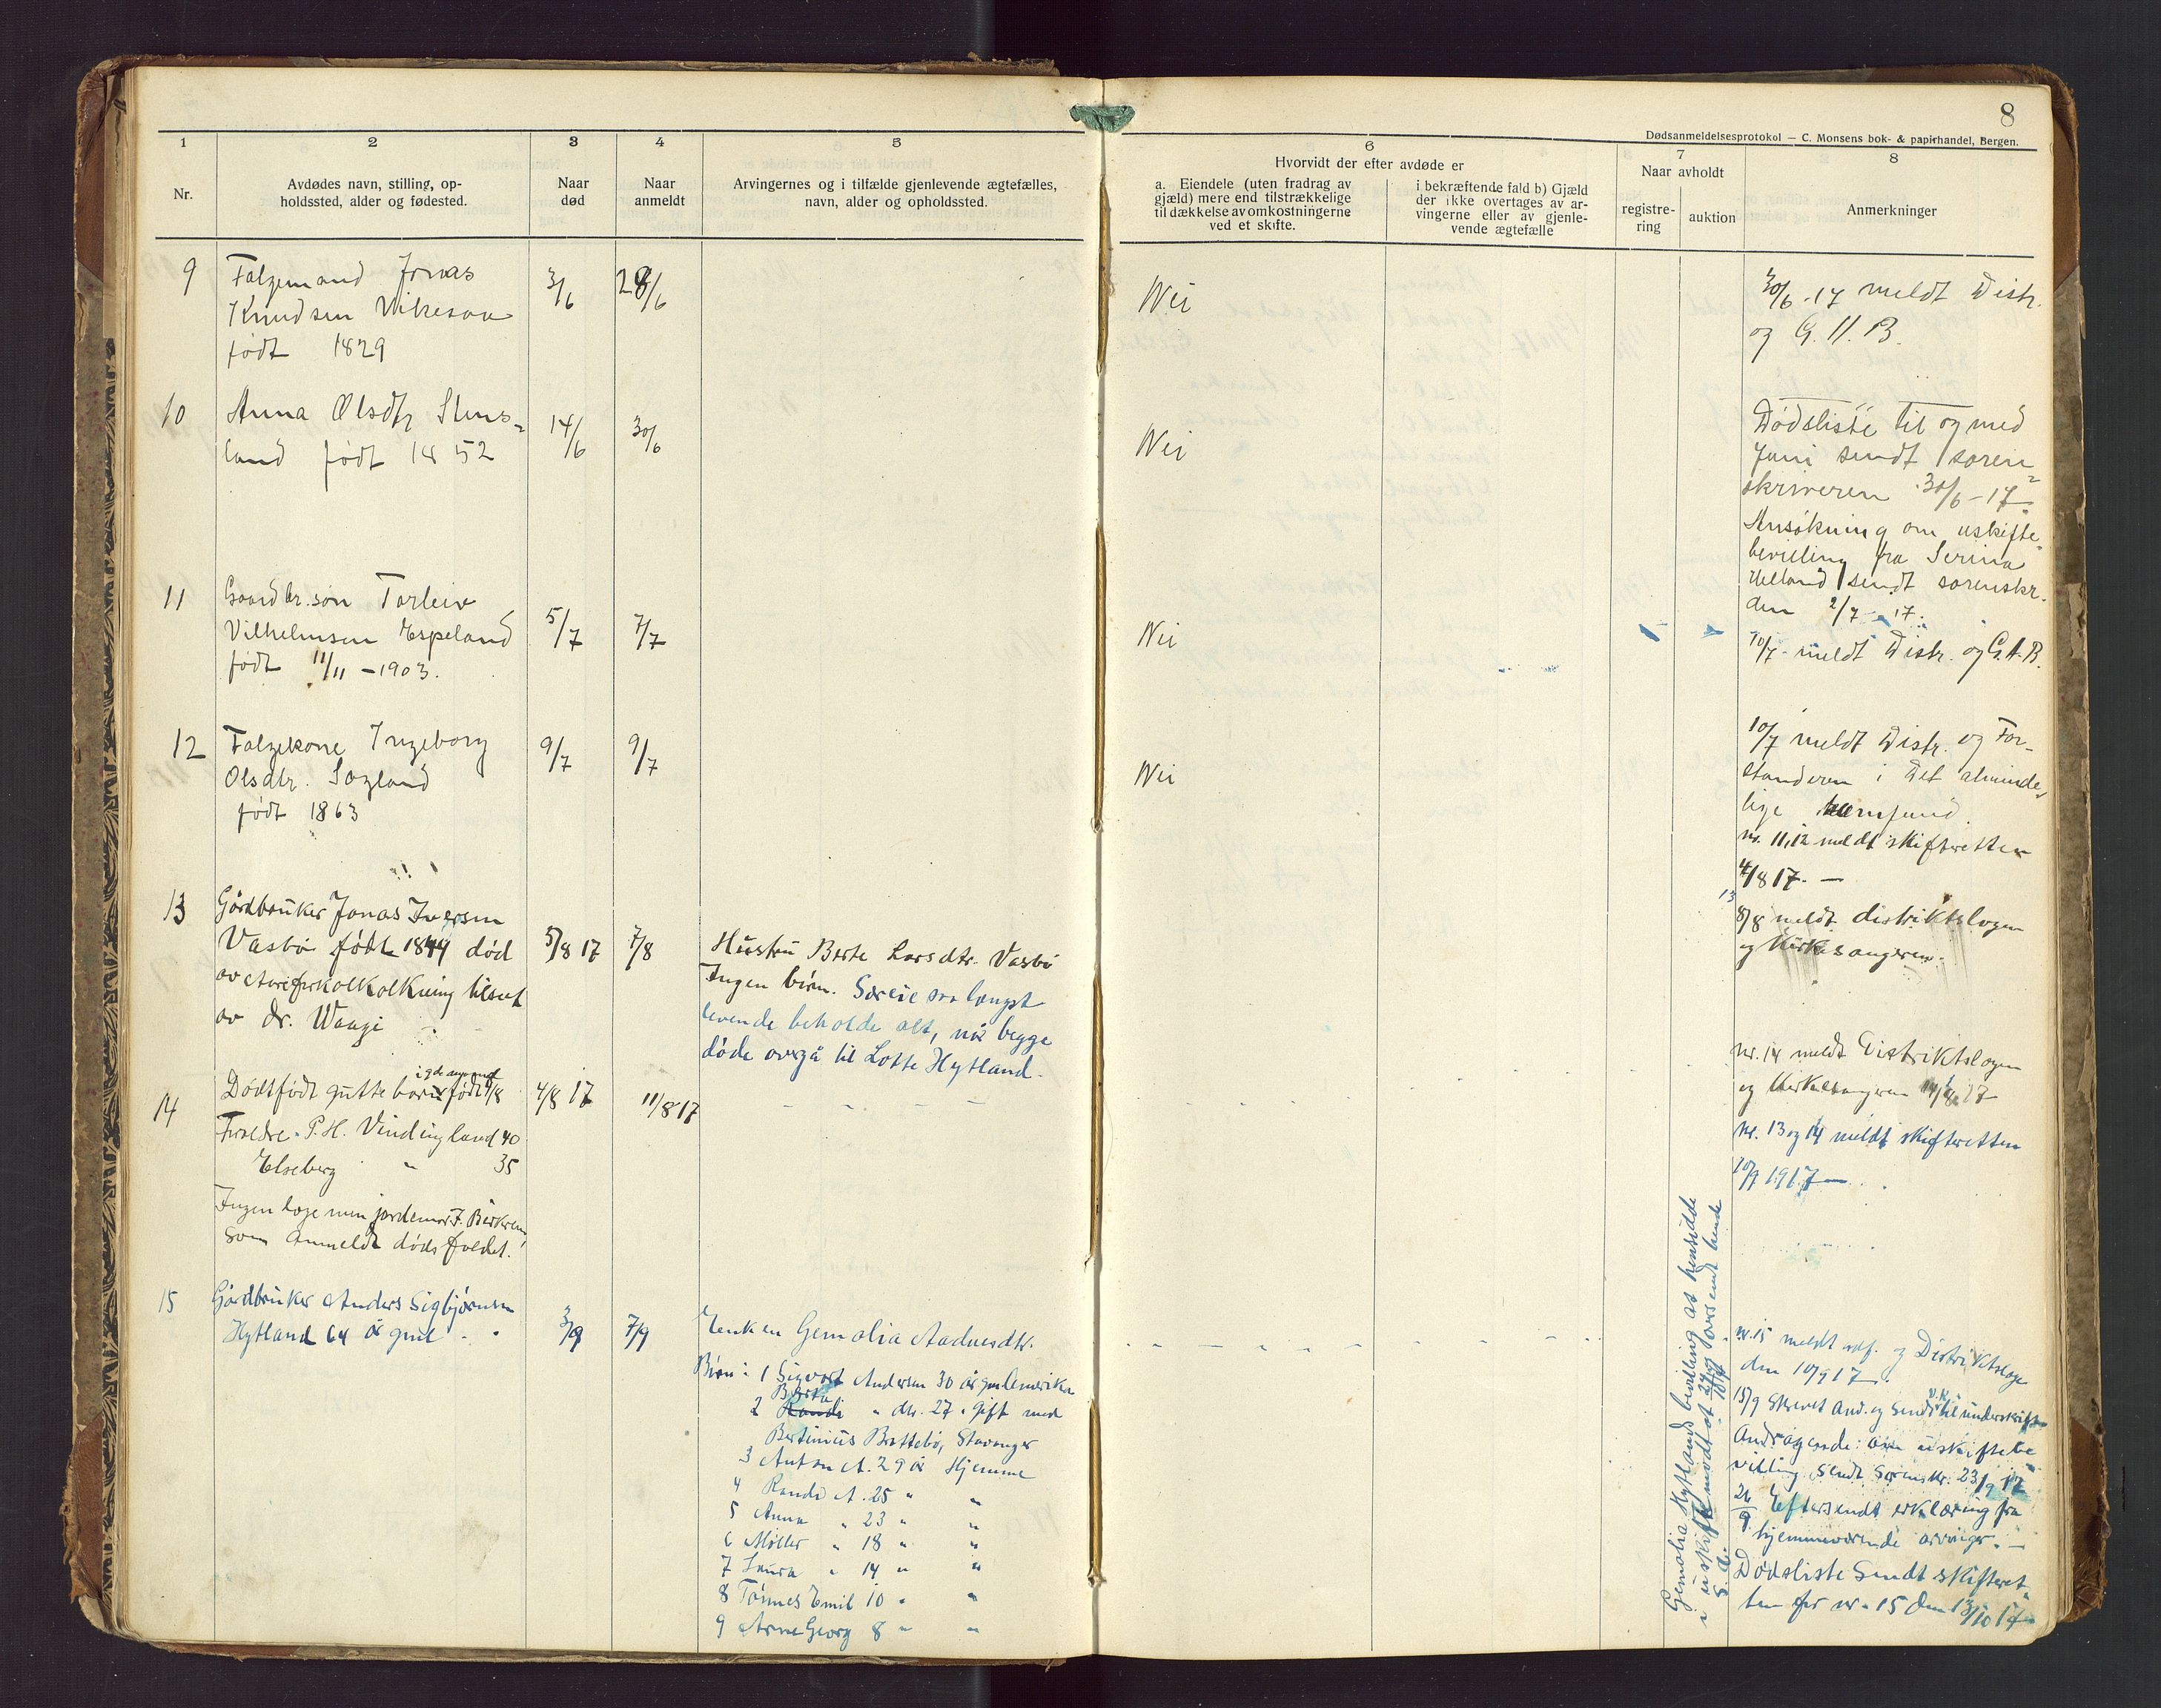 8
Dødsanmeldelsesprotokol — C. Monsens bok- & papirhandel, Bergen.
1
2
3
4
5
6
7
8
Nr.
Avdødes navn, stilling, op-
holdssted, alder og fødested.
Naar
død
Naar
anmeldt
Arvingernes og i tilfælde gjenlevende ægtefælles,
navn, alder og opholdssted.
Hvorvidt der efter avdøde er
a. Eiendele (uten fradrag av
gjæld) mere end tilstrækkelige
til dækkelse av omkostningerne
ved et skifte.
i bekræftende fald b) Gjæld
der ikke overtages av ar-
vingerne eller av gjenle-
vende ægtefælle
Naar avholdt
registre-
ring
auktion
Anmerkninger
9
Folgemand Jonas
Knudsen Vikesaa
født 1829
3/6
28/6
Nei
30/6 - 17 meldt Distr.
og G.H.B.
10
Anna Olsdtr Stens=
land født 1852
14/6
30/6
Nei
Dødsliste til og med
Juni sendt soren=
skriveren 30/6 - 17.
Ansøkning om uskifte
bevilling fra Serina
Helland sendt sorenskr.
den 2/7 - 17.
11
Gaardbr.søn Torleiv
Vilhelmsen Espeland
født 11/11 - 1903.
5/7
7/7
Nei
10/7 - meldt Distr. og G.H.B.
12
Folgekone Ingeborg
Olsdtr. Sagland
født 1863
9/7
9/7
Nei
10/7 meldt Distr. og For-
standeren i Det alminde-
lige samfund.
nr. 11, 12 meldt skifteretten
4/8 17. —
13
Gårdbruker Jonas Iversen
Vasbø født 1849 død
av Areforkalkning tilset
av dr. Waage
5/8 17
7/8
Hustru Berte Larsdtr. Vasbø
Ingen børn. Særeie saa længst
levende beholde alt, når begge
døde overgå til Lotte Hytland.
13
8/8 meldt distriktslogen
og kirkesangeren.
14
Dødfødt guttebarn født 4/8
Foreldre. P. H. Vindingland 40
Elseberg " 35
Ingen læge men jordemor F. Birkrem
som anmeldt dødsfaldet.
4/8 17
11/8 17
nr. 14 meldt Distriktslogen
og Kirkesangeren 14/8 17
nr. 13 og 14 meldt skifteretten
10/9 1917 —
15
Gårdbruker Anders Sigbjørnsen
Hytland 64 år gml.
3/9
7/9
Enken Gemalia Aadnesdtr.
Børn: 1 Sigvart Andersen 30 år gml Amerika
Berta
2 Randi " dtr. 27 " gift med
Bertinius Brattebø, Stavanger
3 Anton A. 29 år Hjemme
4 Randi A. 25 " "
5 Anna " 23 " "
6 Møller " 18 " "
7 Laura " 14 " "
8 Tønnes Emil 10 " "
9 Arne Georg 8 " "
Gemalia Hytlands bevilling at hensidde
i uskifte mottat 27/9 og oversendt hende
10/10 17
S. A.
nr. 15 meldt og Distriktsloge
den 10/9 17.
15/9 Skrevet And. og sendt til underskrift
Andragende: om uskiftebe
villing sendt Sorenskr. 23/9 17
26/9 Eftersendt erklæring fra
hjemmeværende arvinger. —
Dødsliste sendt skifteret
ten for nr. 15 den 13/10 17